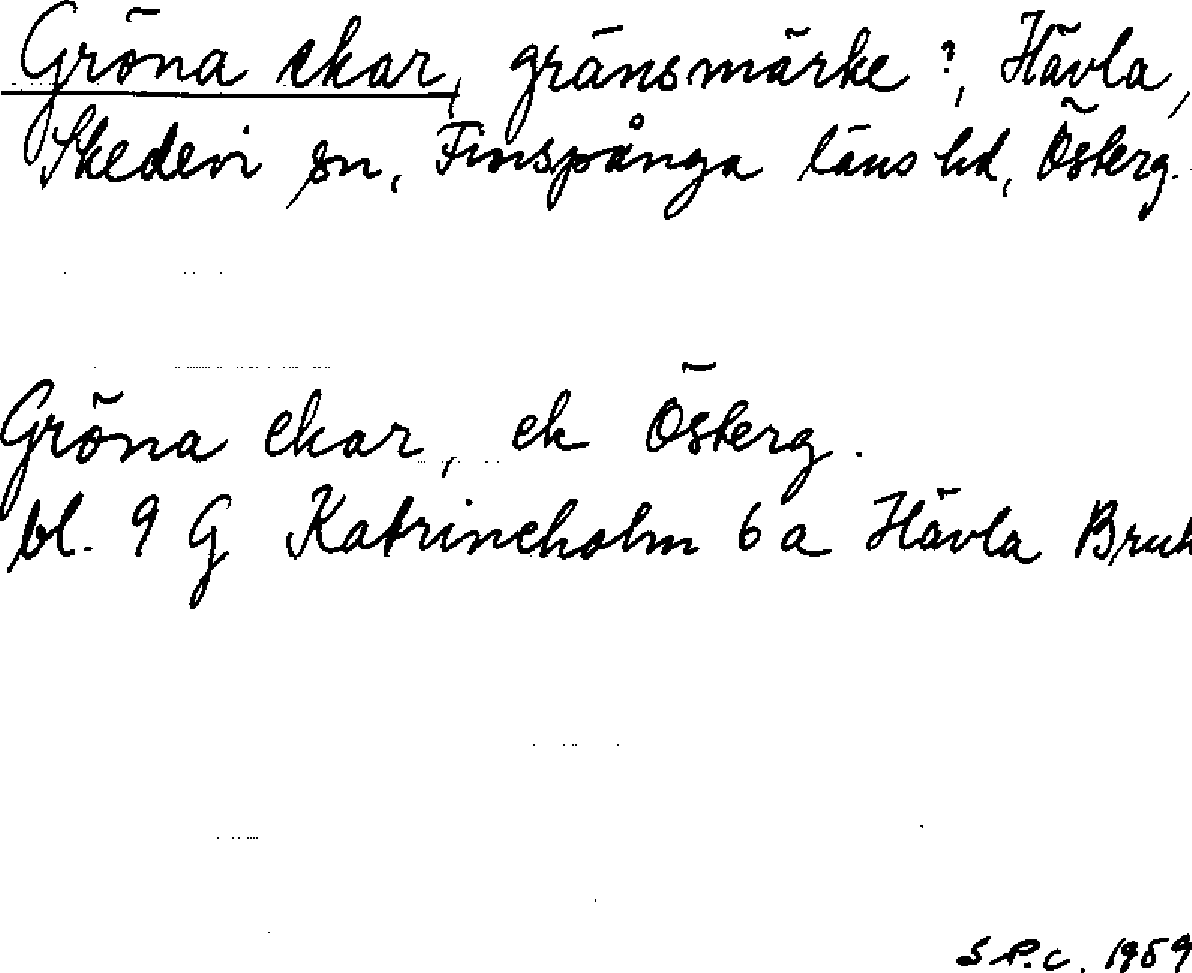 Gröna ekar, gränsmärke?, Hävla,
Skedevi sn, Finspånga läns hd, Österg.
Gröna ekar, ek Österg.
bl. 9 G Katrineholm 6 a Hävla Bruk
S.P.C. 1959